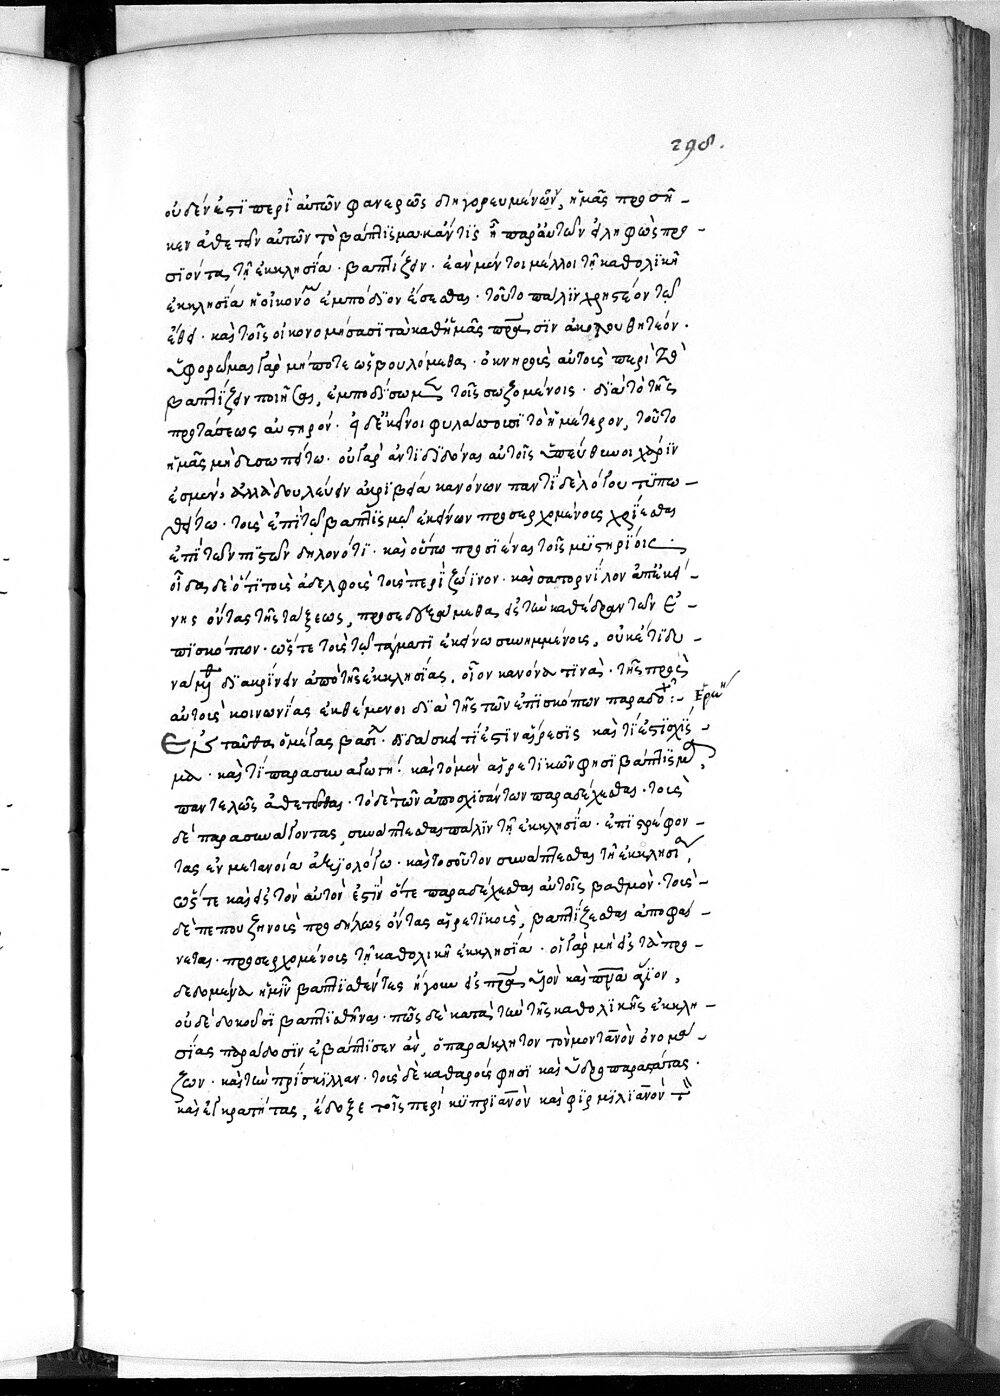 298.
οὐδέν ἐστι περὶ αὐτῶν φανερῶς διηγορευμένων, ἡμᾶς προσῆ-
κεν ἀθετεῖν αὐτῶν τὸ βάπτισμα· κἄν τις ᾖ παρ' αὐτῶν εἰληφὼς προ-
σιόντας τῇ ἐκκλησία βαπτίζειν· ἐὰν μέντοι μέλλοι τῇ καθολικῇ
ἐκκλησία ἡ οἰκονο ἐμπόδιον ἔσεσθαι· τοῦτο πάλιν χρηστέον τῷ
ἔθει· καὶ τοῖς οἰκονομήσασι τὰ καθ' ἡμᾶς πρασιν ἀκολουθητέον·
ὑφορῶμαι γὰρ μήποτε ὡς βουλόμεθα ὀκνηροὺς αὐτοὺς περὶ τὸ
βαπτίζειν ποιῆσαι, ἐμποδίσωμεν τοῖς σωζομένοις· διὰ τὸ τῆς
προτάσεως αὐστηρόν· εἰ δὲ κεῖνοι φυλάττουσι τὸ ἡμέτερον, τοῦτο
ἡμᾶς μὴ δυσωπείτω· οὐ γὰρ ἀντιδιδόναι αὐτοῖς ὑπεύθυνοι χάριν
ἐσμεν· ἀλλὰ δουλεύειν ἀκριβεία κανόνων παντὶ δὲ λόγου τυπω-
θείτω· τοὺς ἐπὶ τῷ βαπτίσματι ἐκείνων προσερχομένοις χρίεσθαι
ἐπὶ τῶν πιστῶν δηλονότι· καὶ οὕτω προσιέναι τοῖς μυστηρίοις·
οἶδα δὲ ὅτι τοὺς ἀδελφοὺς τοὺς περὶ ζώϊνον· καὶ σατορνῖλον ἀπ' ἐκεί-
νης ὄντας τῆς τάξεως, προσεδεξάμεθα εἰς τὴν καθέδραν τῶν ἐ-
πισκόπων· ὥστε τοὺς τῷ τάγματι ἐκείνω συνημμένοις, οὐκέτι δυ-
νάμεθα διακρίνειν ἀπὸ τῆς ἐκκλησίας, οἷον κανόνα τινὰ· τῆς πρὸς
αὐτοὺς κοινωνίας ἐκθέμενοι διὰ τῆς τῶν ἐπισκόπων παραδοχῆς:- Ἑρμη
Ἐνταῦθα ὁ μέγας βασίλειος διδάσκει τί ἐστιν αἵρεσις καὶ τί ἐστι σχίσ-
μα· καὶ τί παρασυναγωγή! καὶ τὸ μὲν αἱρετικῶν φησὶ βάπτισμα,
παντελῶς ἀθετεῖσθαι· τὸ δὲ τῶν ἀποσχισάντων παραδέχεσθαι· τοὺς
δὲ παρασυνάγοντας, συνάπτεσθαι πάλιν τῇ ἐκκλησία· ἐπιστρέφον-
τας ἐν μετανοία ἀξιολόγω· καὶ τοσοῦτον συνάπτεσθαι τῇ ἐκκλησία,
ὥστε καὶ εἰς τὸν αὐτὸν ἔστιν ὅτε παραδέχεσθαι αὐτοῖς βαθμὸν· τοὺς
δὲ πεπουζηνοὺς προδήλως ὄντας αἱρετικοὺς, βαπτίζεσθαι ἀποφαί-
νεται· προσερχομένοις τῇ καθολικῇ ἐκκλησία· οἱ γὰρ μὴ εἰς τὰ πα-
δεδομένα ἡμῖν βαπτισθέντες ἤγουν εἰς πρα υἱὸν καὶ πνα ἅγιον,
οὐδὲ δοκοῦσι βαπτισθῆναι· πῶς δὲ κατὰ τὴν τῆς καθολικῆς ἐκκλη-
σίας παράδοσιν ἐβάπτισεν ἂν, ὁ παράκλητον τὸν μοντανὸν ὀνομά-
ζων· καὶ τὴν πρίσκιλλαν· τοὺς δὲ καθαρούς φησι καὶ ὑδροπαραστάτας·
καὶ ἐγκρατήτας, ἔδοξε τοῖς περὶ κυπριανὸν καὶ φιρμιλιανὸν τ